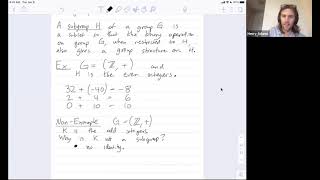 A subgroup H of a group G is
a subset so that the binary operation
on group G, when restricted to H,
also gives a group structure on H.
Ex G = (Z, +) and
H is the even integers.
32 + (-40) = -8
2 + 4 = 6
0 + 10 = 10
Non-Example G = (Z, +)
K is the odd integers
Why is K not a subgroup?
• no identity.